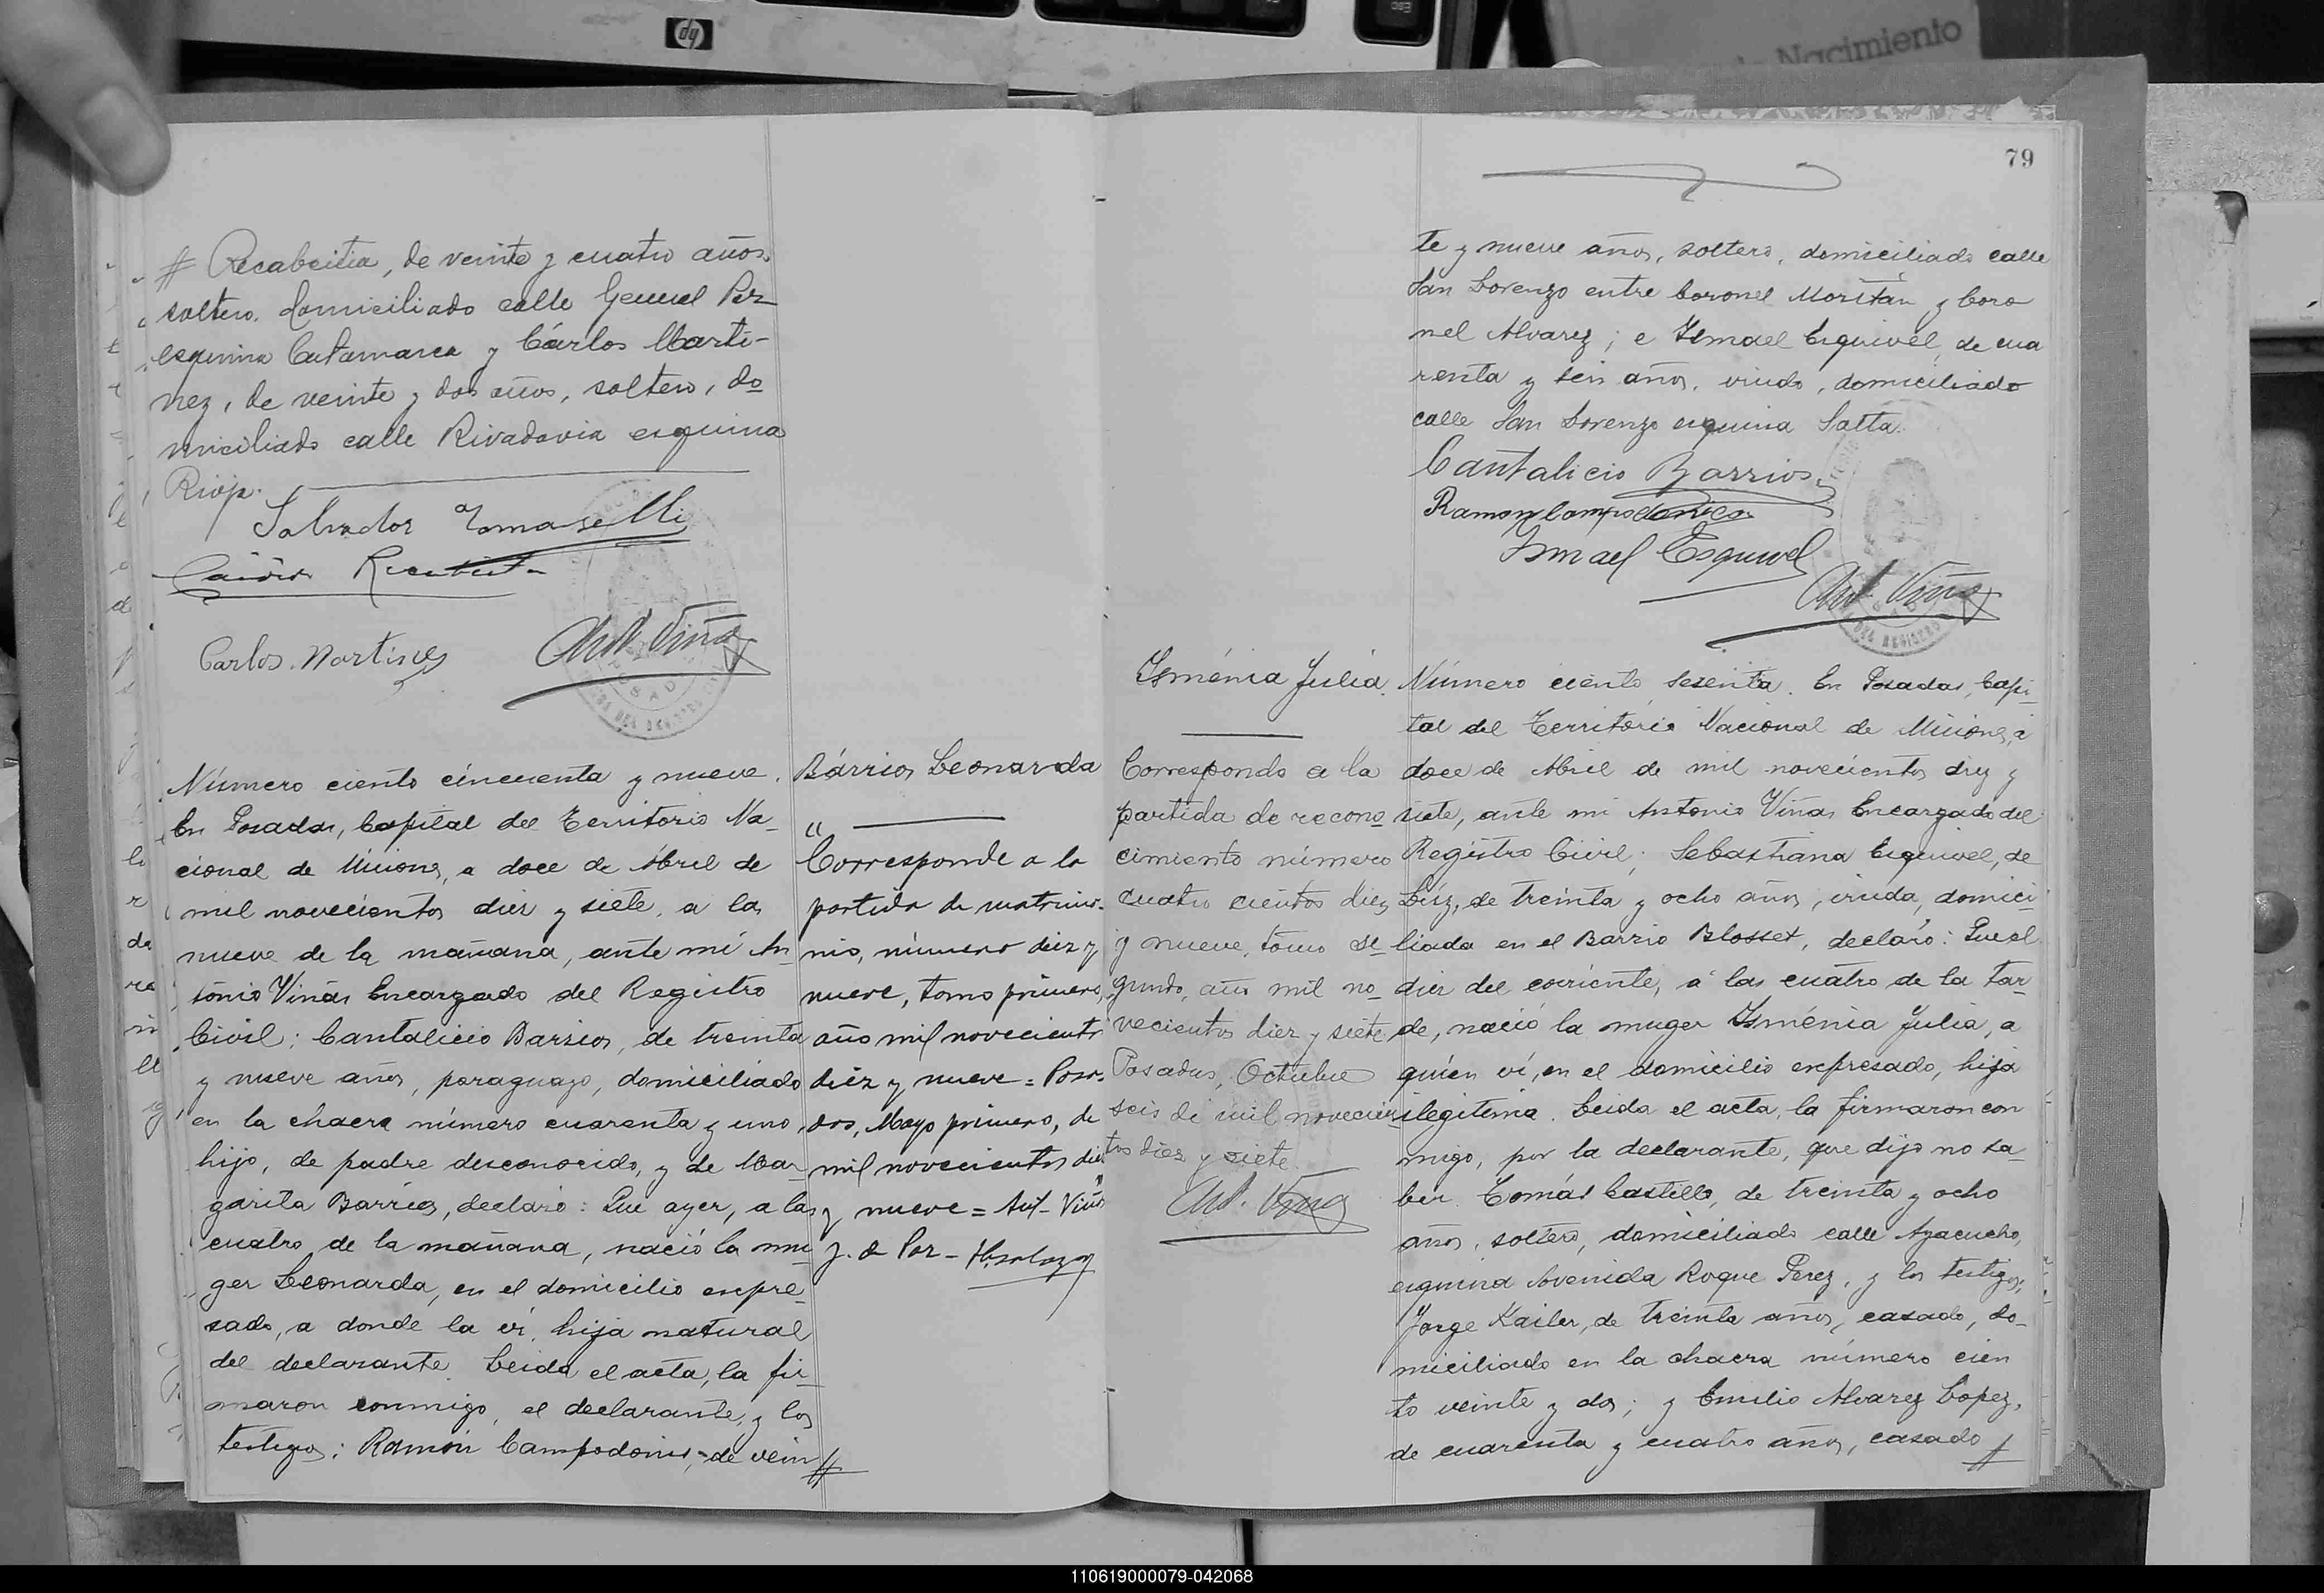 de Nacimiento
hp
79
# Recabeitia, de veinte y cuatro años,
soltero, domiciliado calle General Paz
esquina Catamarca y Cárlos Marti-
nez, de veinte y dos años, soltero, do
miciliado calle Rivadavia esquina
Rioja.
Salvador Tomaselli
Carlos Martinez
Ant. Viñas
Número ciento cincuenta y nueve.
En Posadas, Capital del Territorio Na-
cional de Misiones, a doce de Abril de
mil novecientos diez y siete, a las
nueve de la mañana, ante mí An
tonio Viñas Encargado del Registro
Civil; Cantalicio Barrios, de treinta
y nueve años, paraguayo, domiciliado
en la chacra número cuarenta y uno,
hijo, de padre desconocido, y de Mar
garita Barrios, declaró: Que ayer, a las
cuatro de la mañana, nació la mu
ger Leonarda, en el domicilio expre-
sado, a donde la ví, hija natural
del declarante. Leida el acta, la fir-
maron conmigo, el declarante, y los
testigos: Ramón Campodonico, de vein #
Bárrios Leonarda
"
Corresponde a la
partida de matrimo-
nio, número diez y
nueve, tomo primero,
año mil novecientos
diez y nueve = Posa-
das, Mayo primero, de
mil novecientos diez
y nueve = Ant- Viñas
J. de Paz -
te y nueve años, soltero, domiciliado calle
San Lorenzo entre Coronel Moritán y Coro
nel Alvarez; e Ismael Esquivel, de cua
renta y seis años, viudo, domiciliado
calle San Lorenzo esquina Salta.
Cantalicio Barrios
Ramon Campodonico
Ismael Esquivel
Ant. Viñas
Isménia Julia.
Corresponde a la
partida de recono
cimiento número
cuatro cientos diez
y nueve, tomo se
gundo, año mil no-
vecientos diez y siete
Posadas, Octubre
seis de mil novecien
tos diez y siete.
Ant. Viñas
Número ciento sesenta. En Posadas, Capi-
tal del Territorio Nacional de Misiones, a
doce de Abril de mil novecientos diez y
siete, ante mi Antonio Viñas Encargado del
Registro Civil; Sebastiana Esquivel, de
Luiz, de treinta y ocho años, viuda, domici-
liada en el Barrio Blosset, declaró: Que el
diez del corriente, a las cuatro de la tar-
de, nació la muger Isménia Julia, a
quien ví, en el domicilio expresado, hija
ilegitima. Leida el acta, la firmaron con
migo, por la declarante, que dijo no sa-
ber Tomás Castillo, de treinta y ocho
años, soltero, domiciliado calle Ayacucho,
esquina Avenida Roque Perez, y los testigos;
Jorge Kailer, de treinta años, casado, do-
miciliado en la chacra número cien
to veinte y dos; y Emilio Alvarez Lopez,
de cuarenta y cuatro años, casado #
110619000079-042068